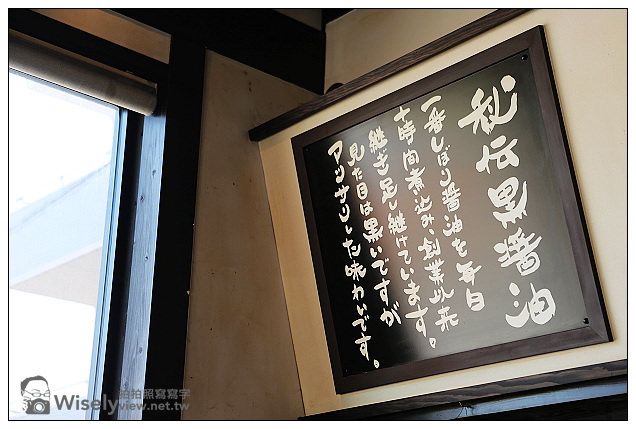 秘伝黒醤油
一番しぼり醤油を毎日
十時間煮込み、創業以来
継ぎ足し継けています。
見た目は黒いですが
アッサリした味わいです。
拍拍照寫寫字
Wiselyview.net.tw